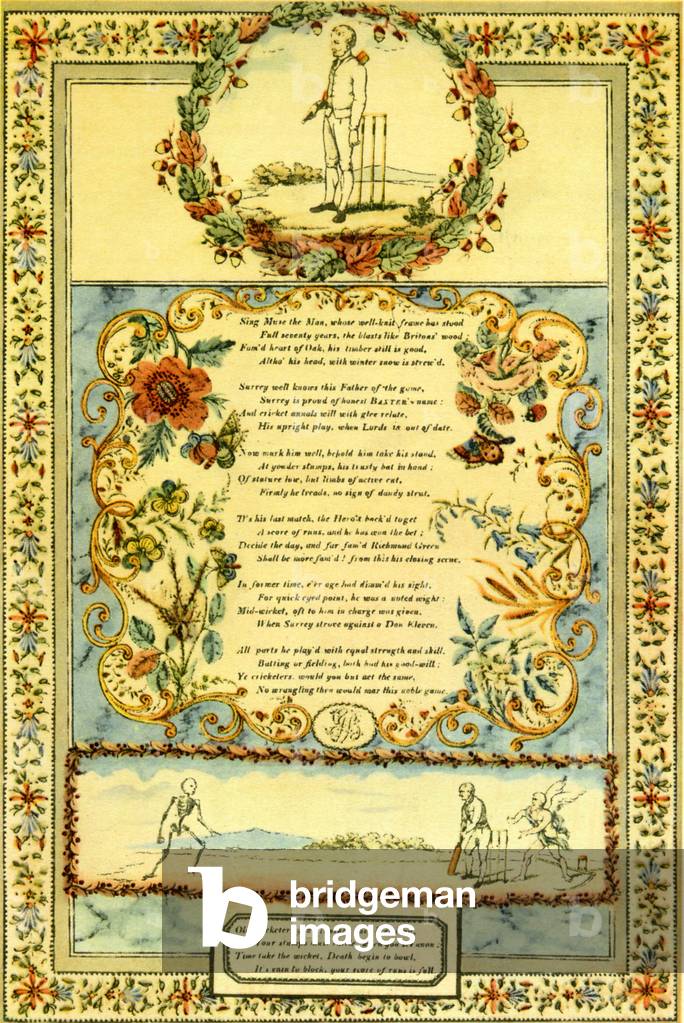 Sing Muse the Man, whose well-knit frame has stood
Full seventy years, the blasts like Britons' wood;
Fam'd heart of Oak, his timber still is good,
Altho' his head, with winter snow is strew'd.
Surrey well knows this Father of the game,
Surrey is proud of honest BAXTER's name:
And cricket annals will with glee relate,
His upright play, when Lords is out of date.
Now mark him well, behold him take his stand,
At yonder stumps, his trusty bat in hand;
Of stature low, but limbs of active cut,
Firmly he treads, no sign of dandy strut.
'Tis his last match, the Hero's back'd to get
A score of runs, and he has won the bet;
Decide the day, and far fam'd Richmond Green
Shall be more fam'd! from this his closing scene.
In former time, e'er age had dimm'd his sight,
For quick eyed point, he was a noted wight:
Mid-wicket, oft to him in charge was given,
When Surrey strove against a Don Eleven.
All parts he play'd with equal strength and skill,
Batting or fielding, both had his good-will;
Ye cricketers, would you but act the same,
No wrangling then would mar this noble game.
bridgeman
images
Time take the wicket, Death begin to bowl,
It's vain to block, your score of runs is full